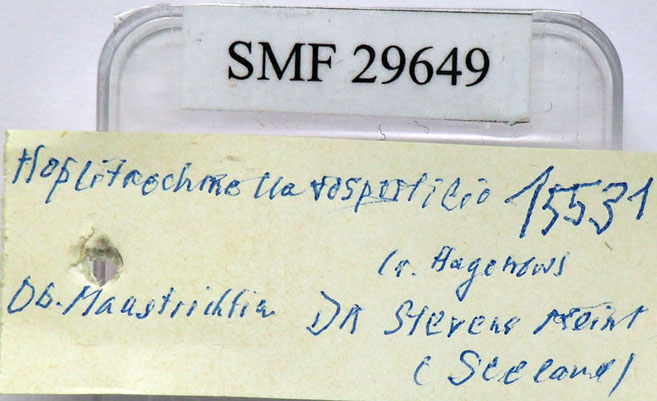 SMF 29649
Hoplitaechmella vespertilio 15531
(v. Hagenow)
Ob. Maastrichtin DK Stevens Kleint
(Seeland)